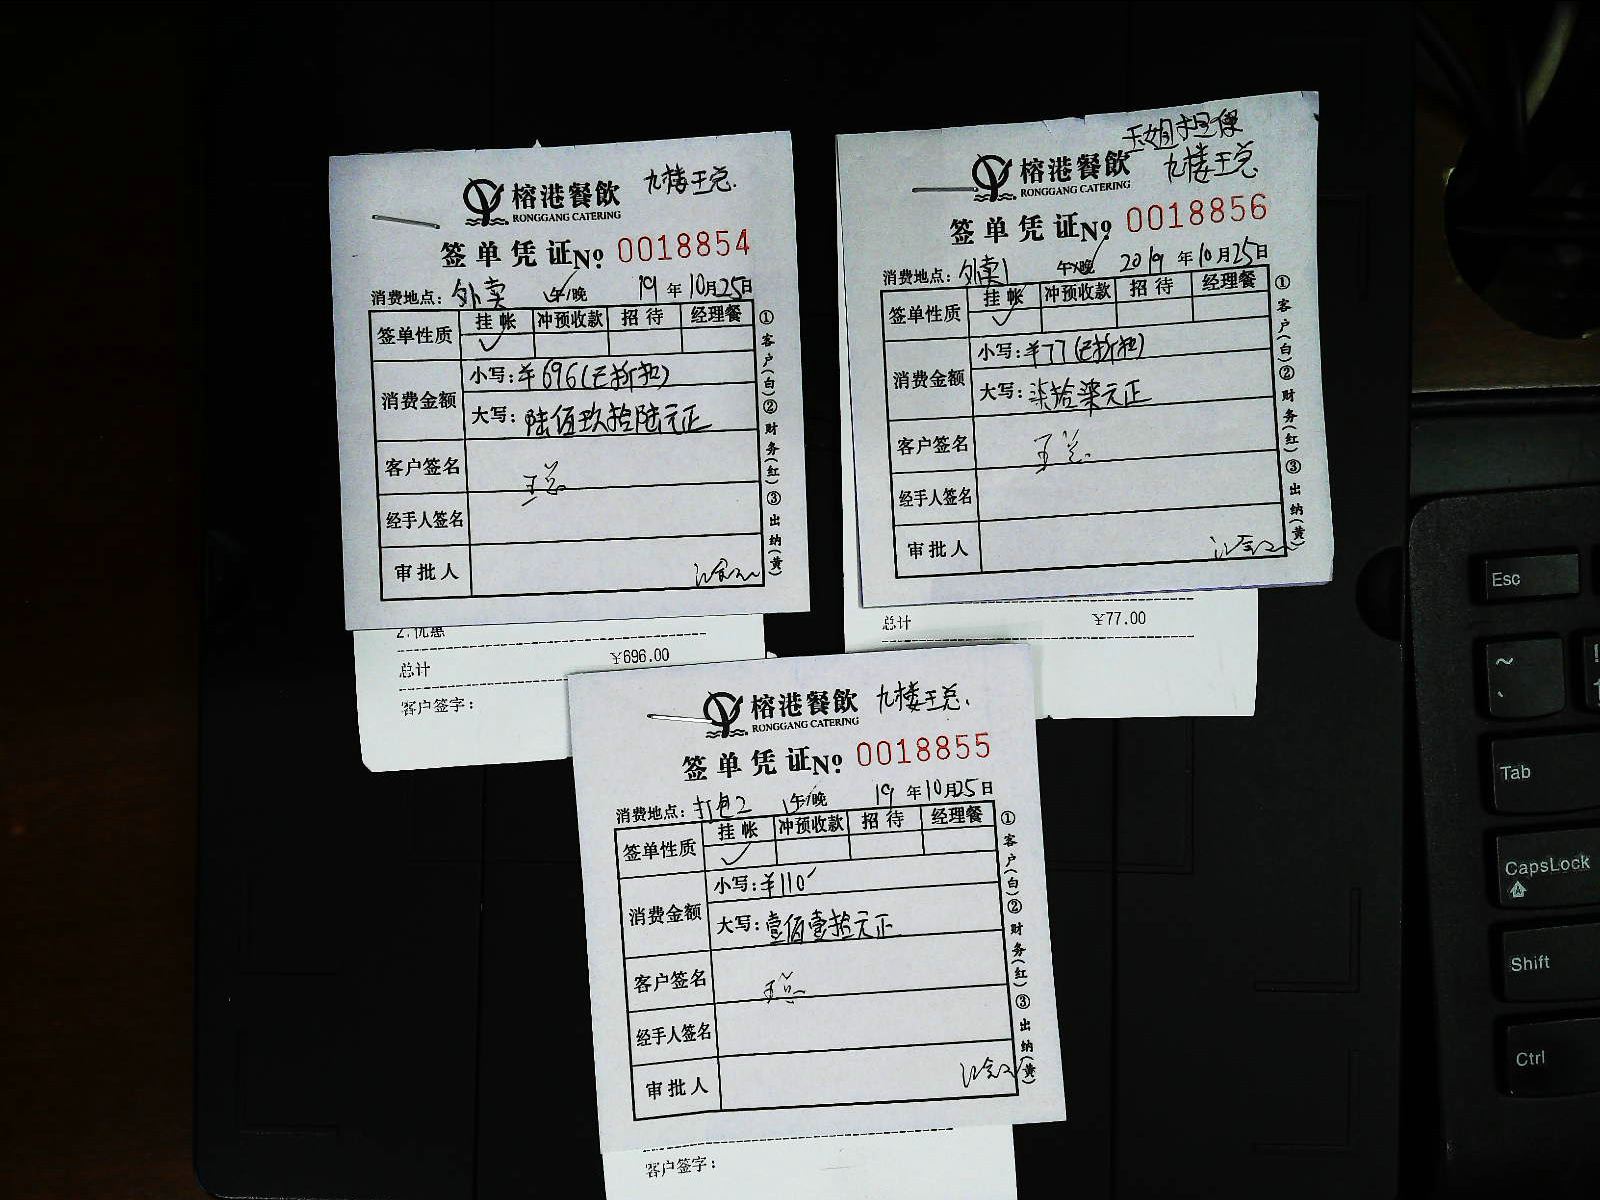 九楼王总.
榕港餐飲
RONGGANG CATERING
签单凭证No. 0018854
消费地点: 外卖 午/晚 19年10月25日
签单性质 挂帐 冲预收款 招待 经理餐
✓
消费金额 小写: ¥696(已折扣)
大写: 陆佰玖拾陆元正
客户签名 王总
经手人签名
审批人
①客户(白)②财务(红)③出纳(黄)
2.优惠
总计 ¥696.00
客户签字:
玉姐担保
九楼王总
榕港餐飲
RONGGANG CATERING
签单凭证No. 0018856
消费地点: 外卖1 午/晚 2019年10月25日
签单性质 挂帐 冲预收款 招待 经理餐
✓
消费金额 小写: ¥77(已折扣)
大写: 柒拾柒元正
客户签名 王总
经手人签名
审批人
①客户(白)②财务(红)③出纳(黄)
总计 ¥77.00
九楼王总.
榕港餐飲
RONGGANG CATERING
签单凭证No. 0018855
消费地点: 打包2 午/晚 19年10月25日
签单性质 挂帐 冲预收款 招待 经理餐
✓
消费金额 小写: ¥110
大写: 壹佰壹拾元正
客户签名 王总
经手人签名
审批人
①客户(白)②财务(红)③出纳(黄)
客户签字:
Esc
~
Tab
CapsLock
Shift
Ctrl